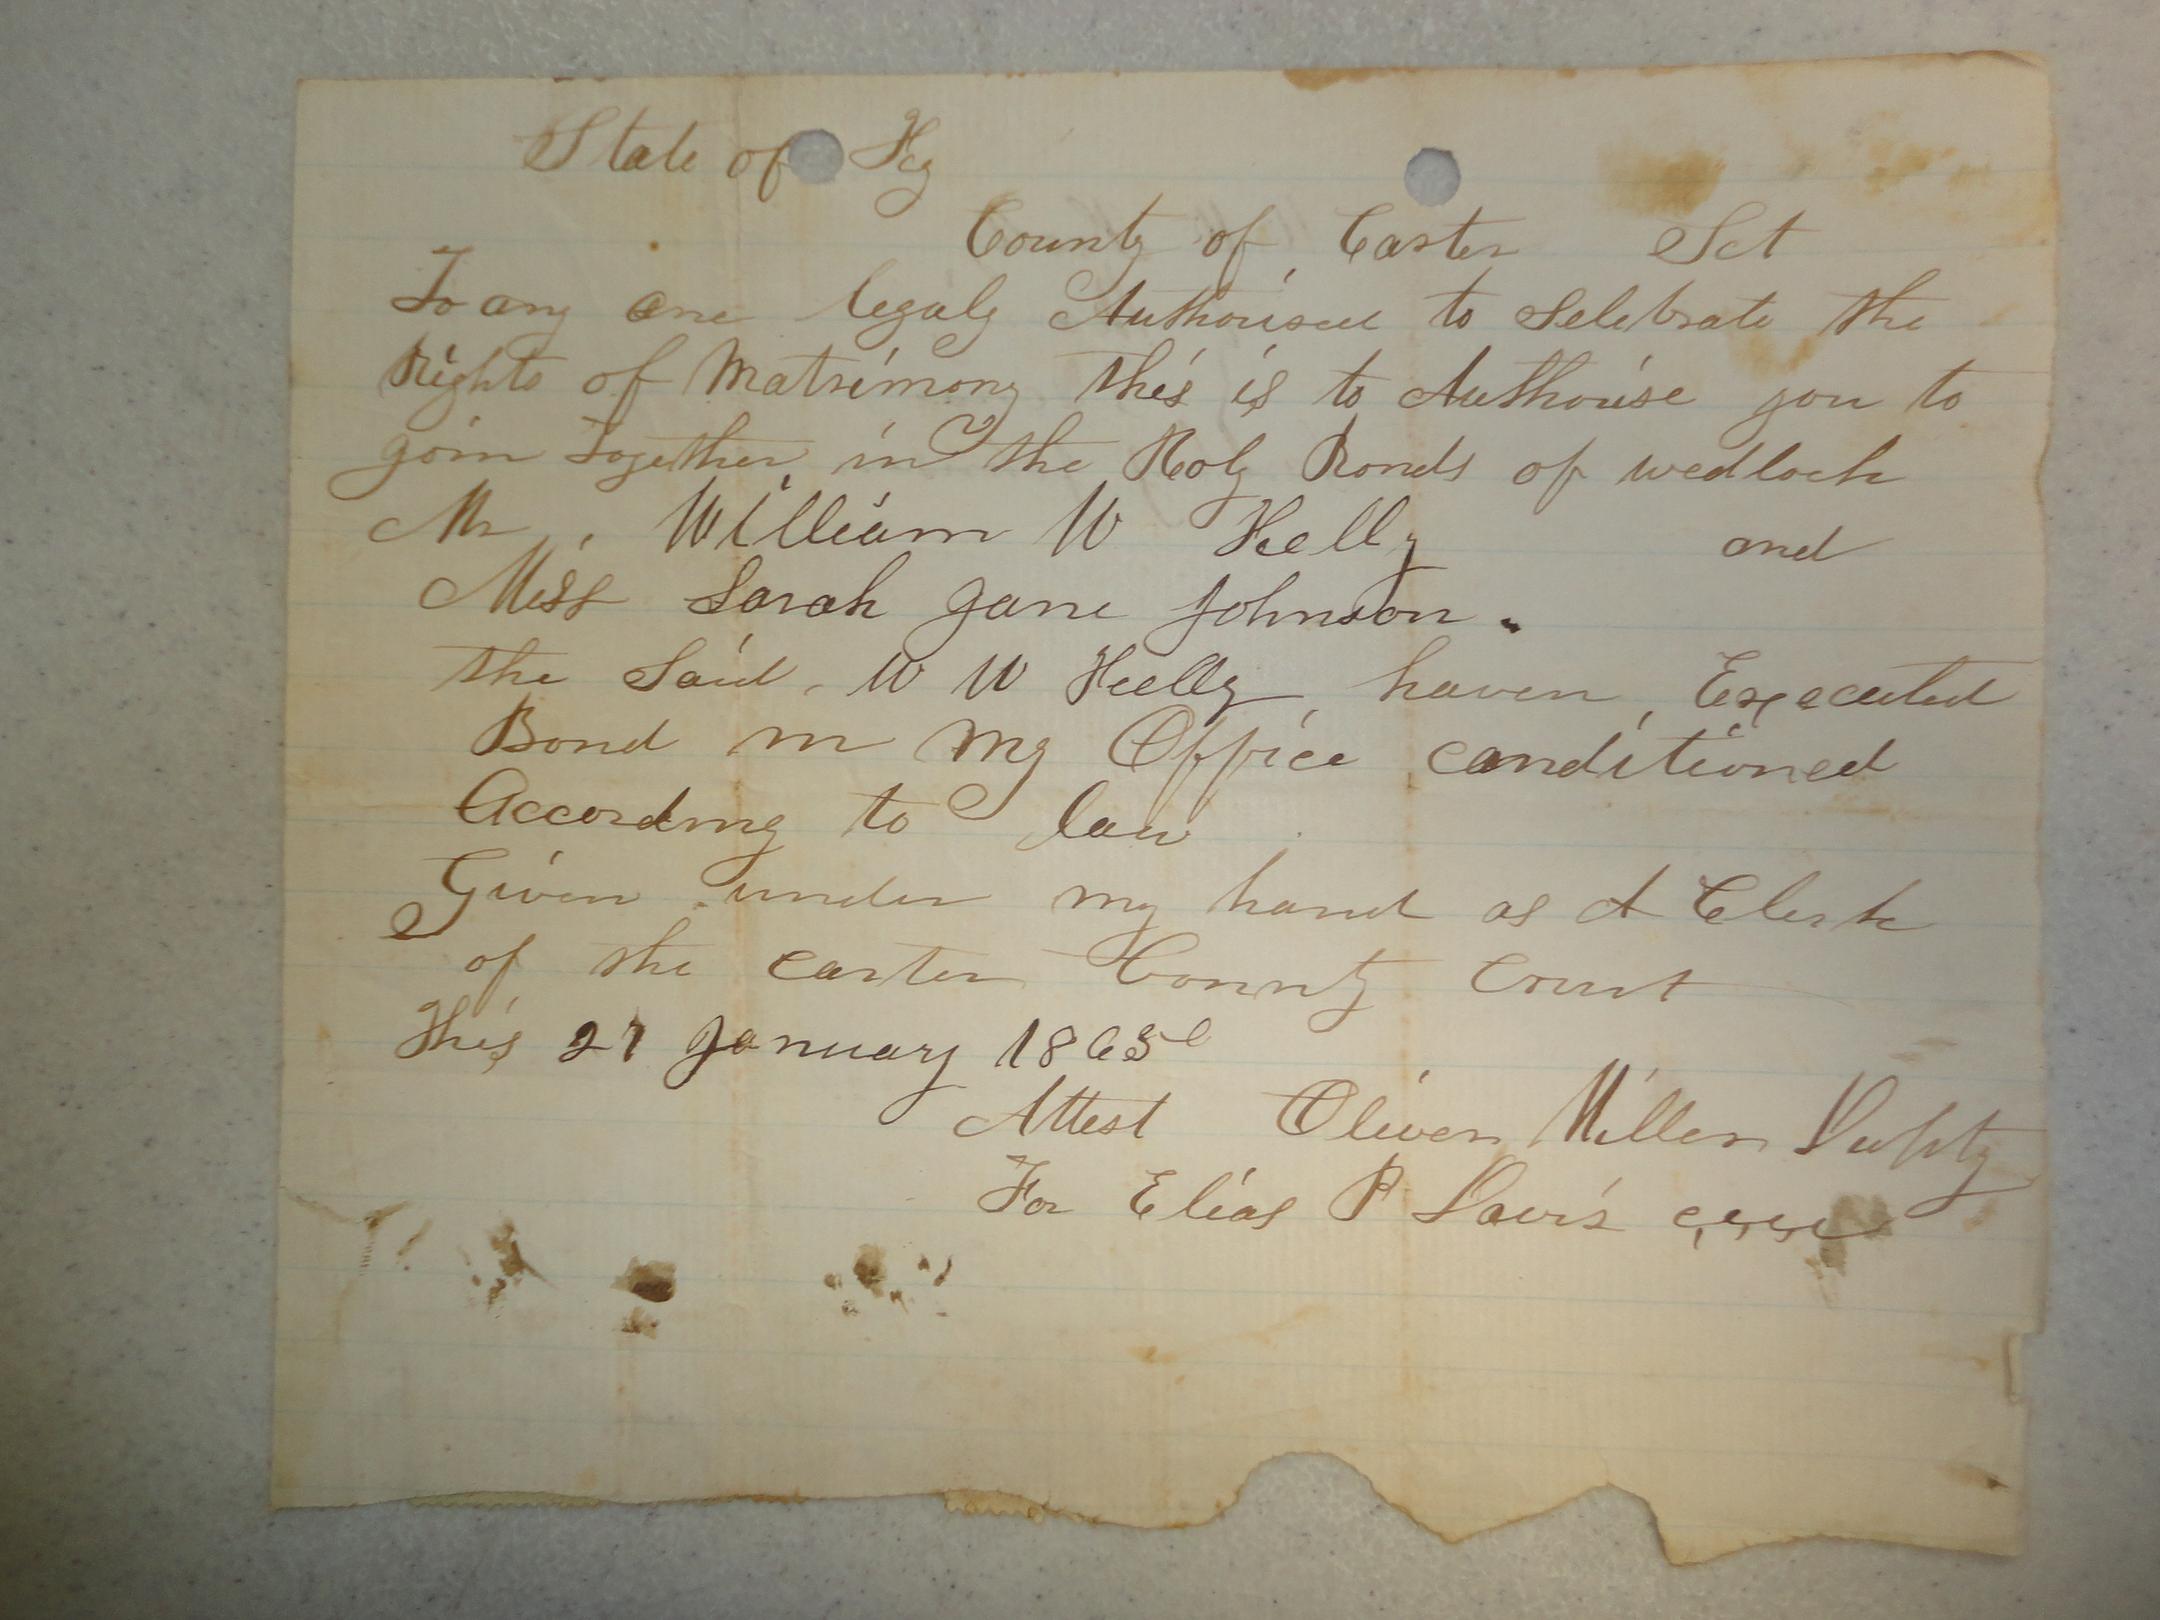 State of Ky
County of Carter Sct
To any one legaly Authorised to Selebrate the
Rights of Matrimony this is to Authorise you to
join Together in the Holy Bonds of wedlock
Mr. William W Kelly and
Miss Sarah Jane Johnson.
the Said W W Kelly haven Executed
Bond in my Office conditioned
According to law
Given under my hand as A Clerk
of the carter County Court
This 27 January 1865
Attest Oliver Miller Deputy
For Elias P Davis